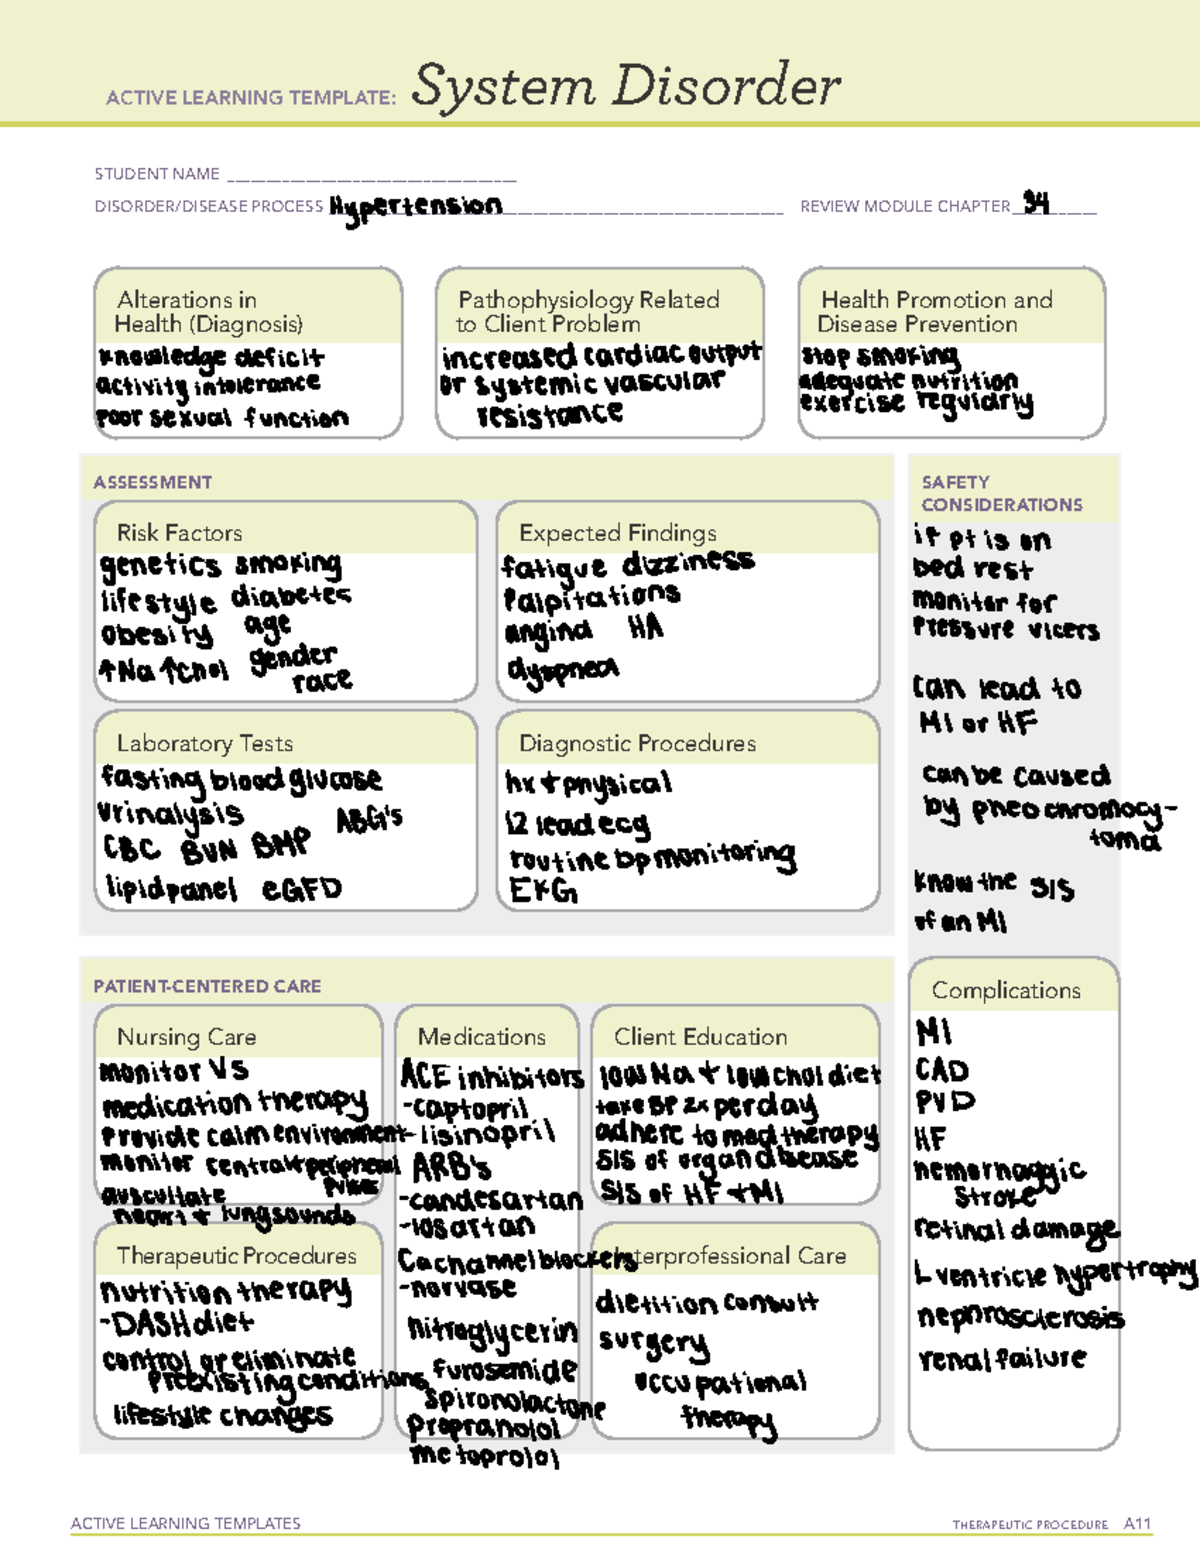 ACTIVE LEARNING TEMPLATE: System Disorder
STUDENT NAME
DISORDER/DISEASE PROCESS Hypertension REVIEW MODULE CHAPTER 34
Alterations in
Health (Diagnosis)
knowledge deficit
activity intolerance
poor sexual function
Pathophysiology Related
to Client Problem
increased cardiac output
or systemic vascular
resistance
Health Promotion and
Disease Prevention
stop smoking
adequate nutrition
exercise regularly
ASSESSMENT
Risk Factors
genetics smoking
lifestyle diabetes
obesity age
↑Na ↑chol gender
race
Expected Findings
fatigue dizziness
palpitations
angina HA
dyspnea
Laboratory Tests
fasting blood glucose
urinalysis ABG's
CBC BUN BMP
lipid panel eGFD
Diagnostic Procedures
hx + physical
12 lead ecg
routine bp monitoring
EKG
SAFETY
CONSIDERATIONS
if pt is on
bed rest
monitor for
pressure vicers
can lead to
MI or HF
can be caused
by pheochromocy-
toma
know the S/S
of an MI
PATIENT-CENTERED CARE
Nursing Care
monitor VS
medication therapy
provide calm environment
monitor central + peripheral
pulses
auscultate
heart + lung sounds
Medications
ACE inhibitors
-captopril
-lisinopril
ARB's
-candesartan
-losartan
Ca channel blockers
-norvasc
nitroglycerin
furosemide
spironolactone
propranolol
metoprolol
Client Education
low Na + low chol diet
take BP 2x per day
adhere to med therapy
S/S of organ disease
S/S of HF + MI
Therapeutic Procedures
nutrition therapy
-DASH diet
control or eliminate
preexisting conditions
lifestyle changes
Interprofessional Care
dietition consult
surgery
occupational
therapy
Complications
MI
CAD
PVD
HF
hemorhaggic
stroke
retinal damage
L ventricle hypertrophy
nephrosclerosis
renal failure
ACTIVE LEARNING TEMPLATES THERAPEUTIC PROCEDURE A11